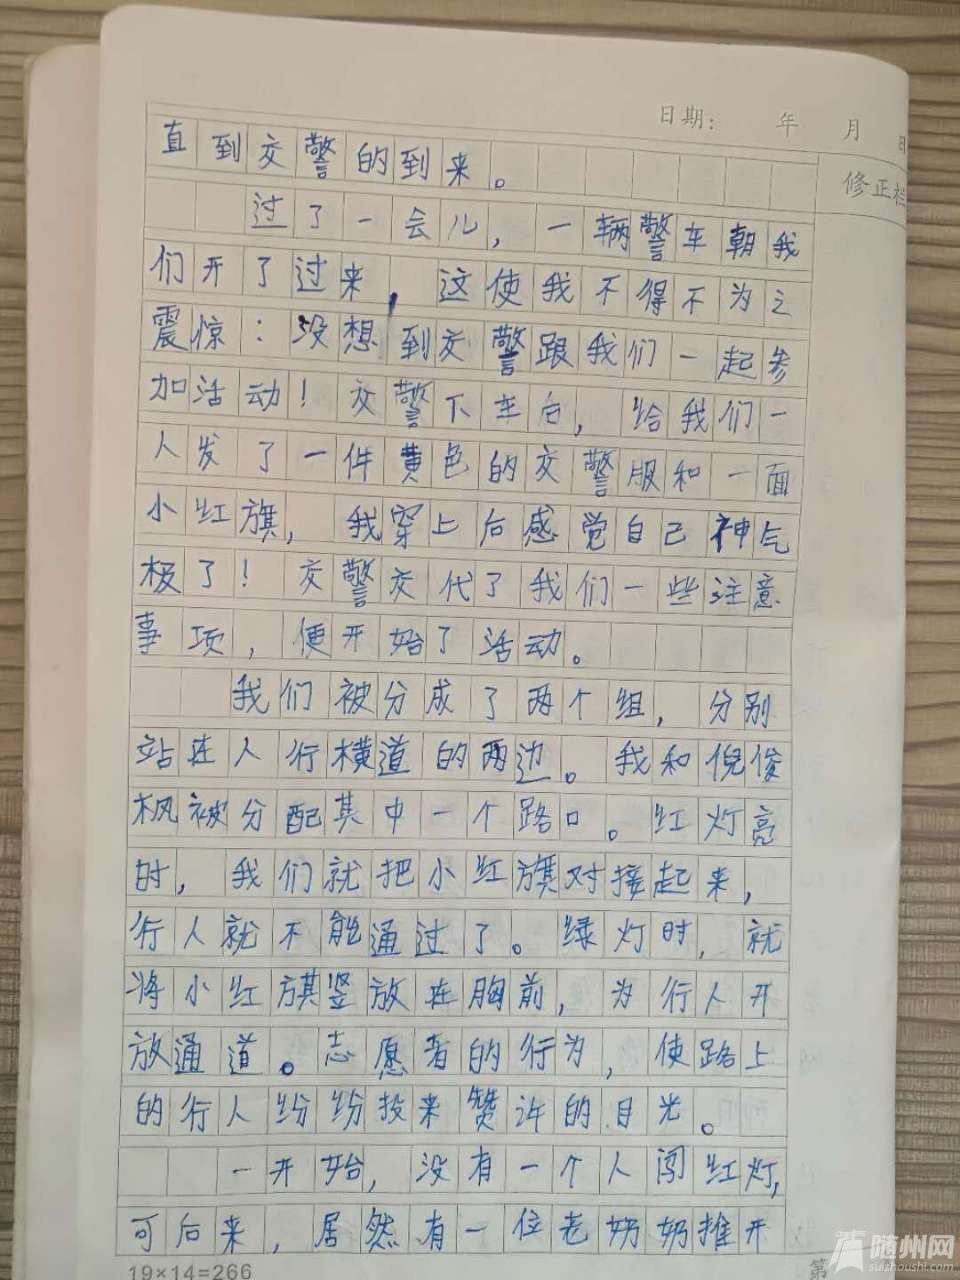 日期： 年 月 日
修正栏
直到交警的到来。
过了一会儿，一辆警车朝我
们开了过来，这使我不得不为之
震惊：没想到交警跟我们一起参
加活动！交警下车后，给我们一
人发了一件黄色的交警服和一面
小红旗，我穿上后感觉自己神气
极了！交警交代了我们一些注意
事项，便开始了活动。
我们被分成了两个组，分别
站在人行横道的两边。我和倪俊
枫被分配其中一个路口。红灯亮
时，我们就把小红旗对接起来，
行人就不能通过了。绿灯时，就
将小红旗竖放在胸前，为行人开
放通道。志愿者的行为，使路上
的行人纷纷投来赞许的目光。
一开始，没有一个人闯红灯，
可后来，居然有一位老奶奶推开
19×14=266
第
随州网
suizhoushi.com